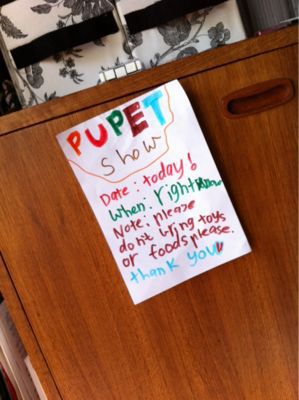 PUPET
Show
Date: today!
When: right now
Note: please
don't bring toys
or foods please.
thank you!